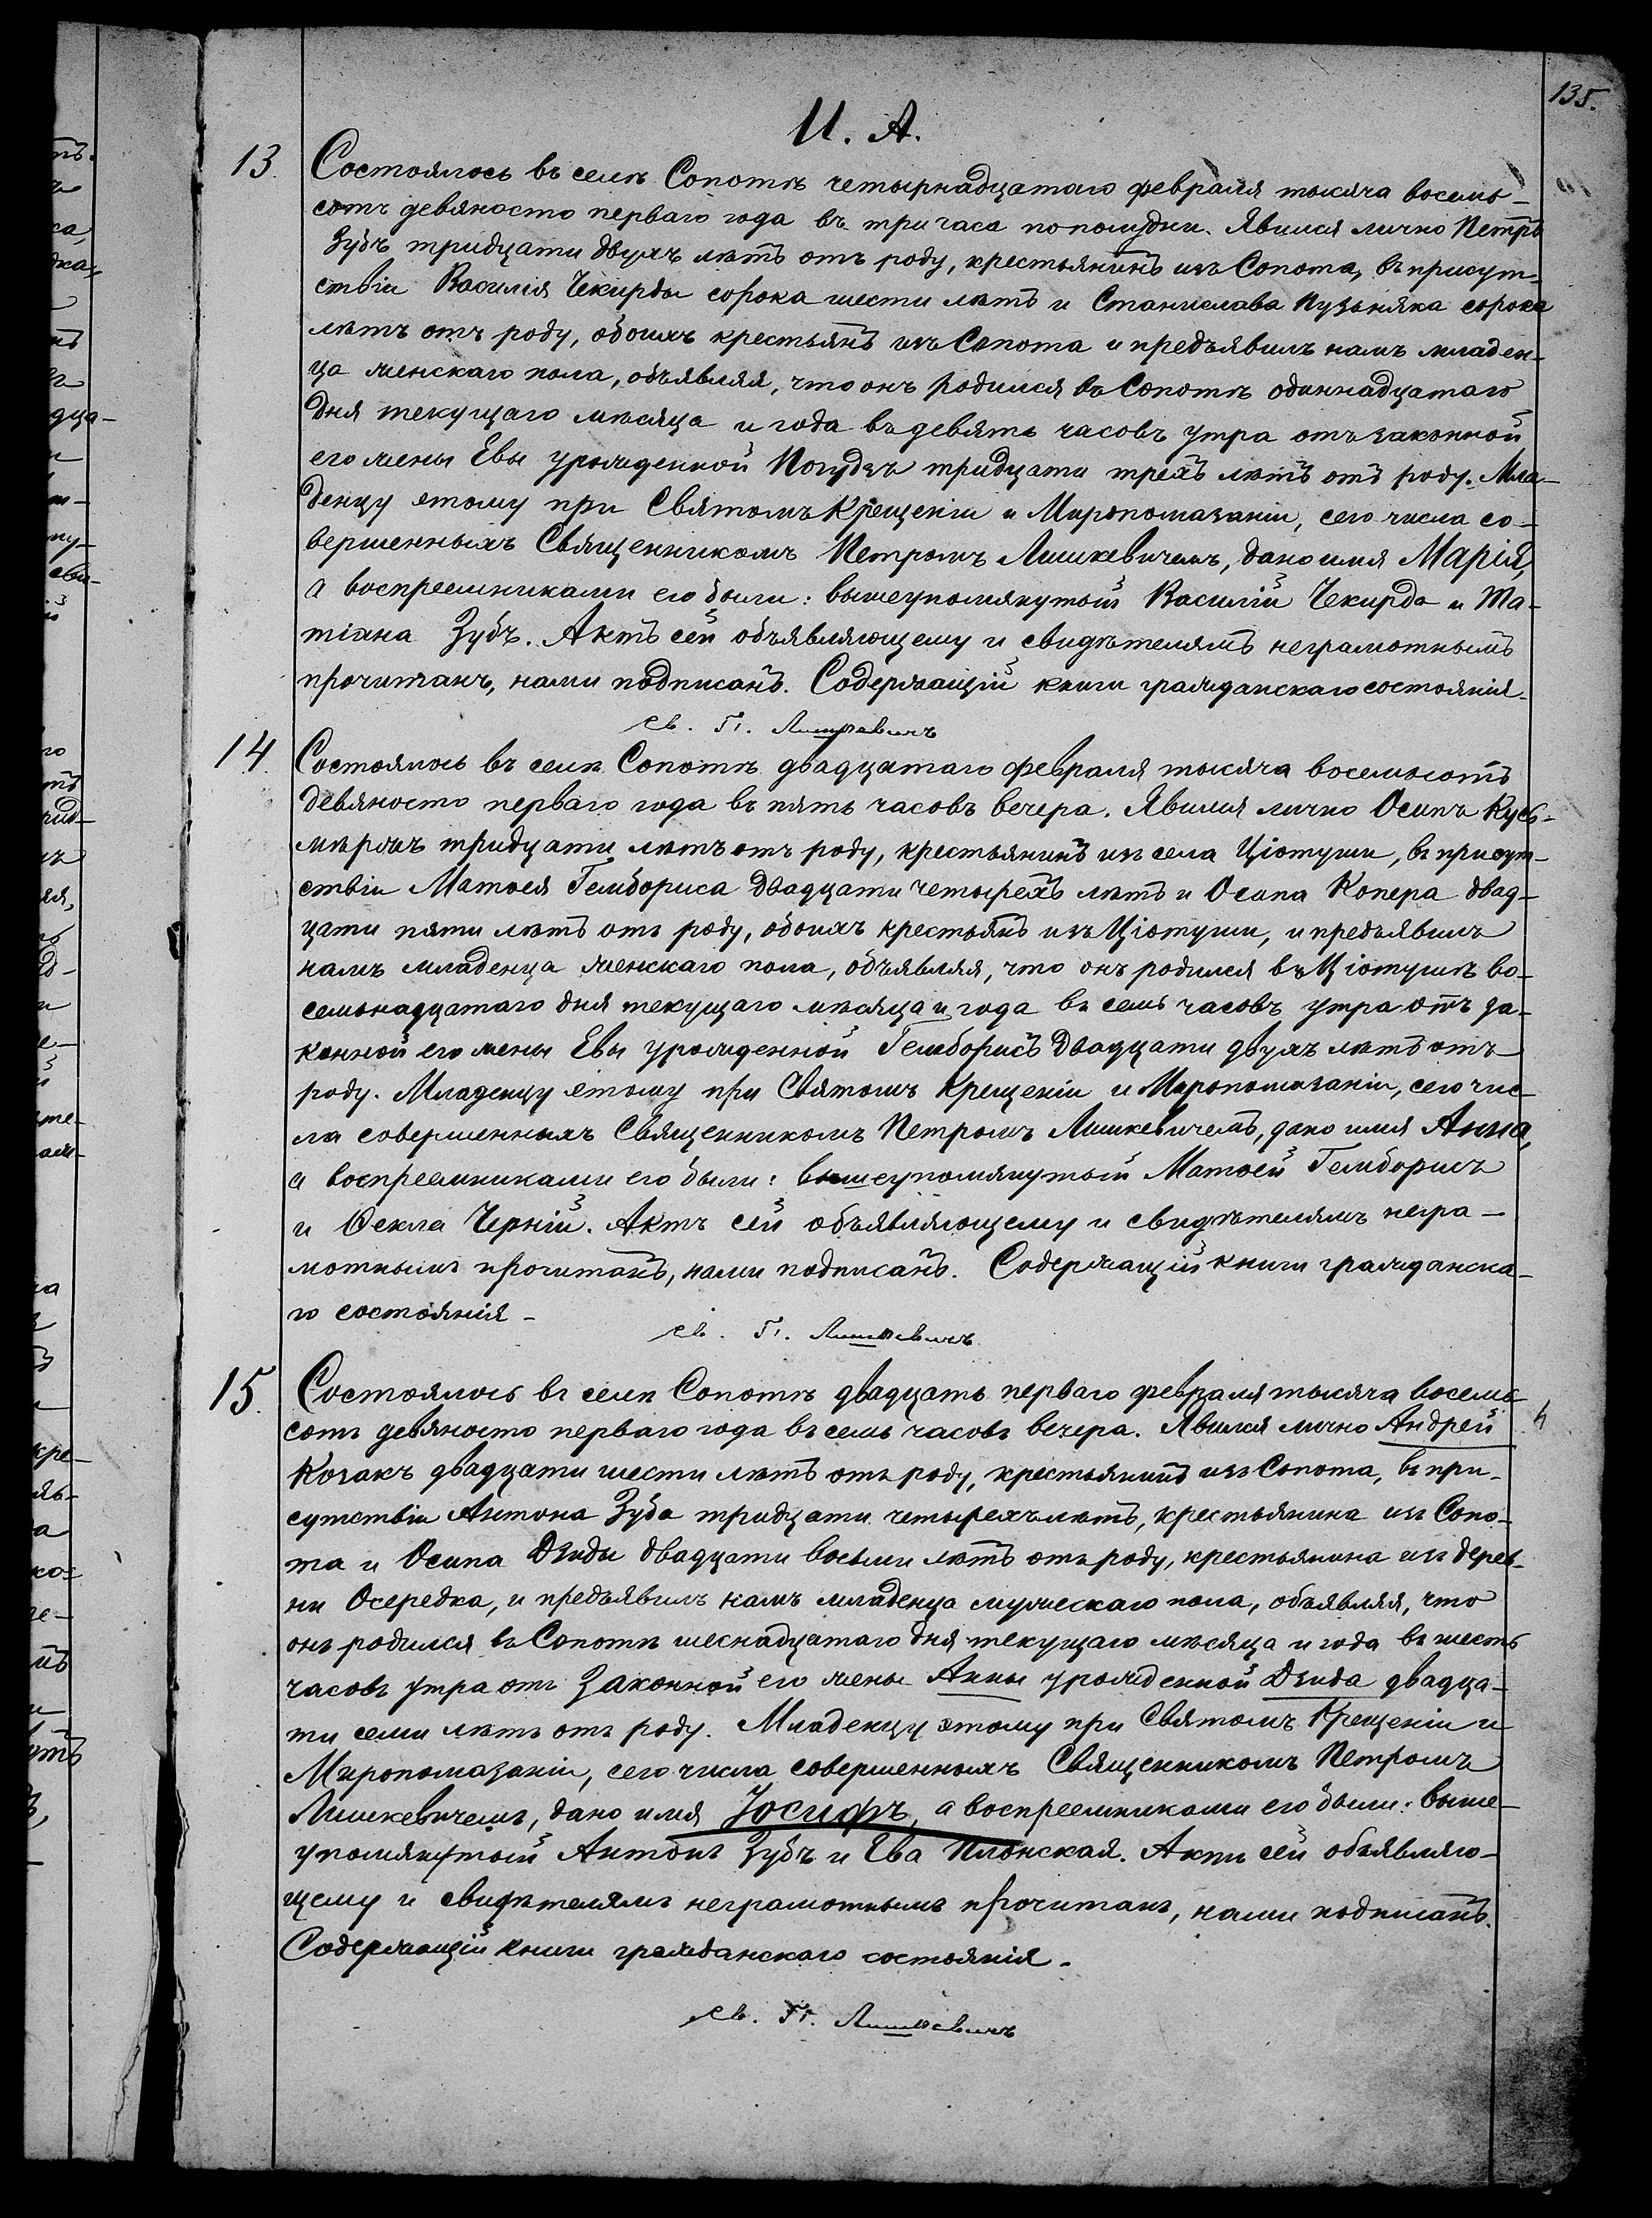 135.
И. А.
13. Состоялось въ селѣ Сопотѣ четырнадцатаго февраля тысяча восемь-
сотъ девяносто перваго года въ три часа по полудни. Явился лично Петръ
Зубъ тридцати двухъ лѣтъ отъ роду, крестьянинъ изъ Сопота, въ присут-
ствіи Василія Чекирды сорока шести лѣтъ и Станислава Пузьняка сорока
лѣтъ отъ роду, обоихъ крестьянъ изъ Сопота и предъявилъ намъ младен-
ца женскаго пола, объявляя, что онъ родился въ Сопотѣ одиннадцатаго
дня текущаго мѣсяца и года въ девять часовъ утра отъ законной
его жены Евы урожденной Погудзъ тридцати трехъ лѣтъ отъ роду. Мла-
денцу этому при Святомъ Крещеніи и Миропомазаніи, сего числа со-
вершенныхъ Священникомъ Петромъ Лишкевичемъ, дано имя Марія,
а воспреемниками его были: вышеупомянутый Василій Чекирда и Та-
тіяна Зубъ. Актъ сей объявляющему и свидѣтелямъ неграмотнымъ
прочитанъ, нами подписанъ. Содержащій книги гражданскаго состоянія.
Св. П. Лишкевичъ
14. Состоялось въ селѣ Сопотѣ двадцатаго февраля тысяча восемьсотъ
девяносто перваго года въ пять часовъ вечера. Явился лично Осипъ Кусь-
мѣржъ тридцати лѣтъ отъ роду, крестьянинъ изъ села Ціотуши, въ присут-
ствіи Матѳея Гембориса двадцати четырехъ лѣтъ и Осипа Копера двад-
цати пяти лѣтъ отъ роду, обоихъ крестьянъ изъ Ціотуши, и предъявилъ
намъ младенца женскаго пола, объявляя, что онъ родился въ Ціотушѣ во-
семьнадцатаго дня текущаго мѣсяца и года въ семь часовъ утра отъ за-
конной его жены Евы урожденной Гемборисъ двадцати двухъ лѣтъ отъ
роду. Младенцу этому при Святомъ Крещеніи и Миропомазаніи, сего чис-
ла совершенныхъ Священникомъ Петромъ Лишкевичемъ, дано имя Анна,
а воспреемниками его были: вышеупомянутый Матѳей Гемборисъ
и Ѳекла Черній. Актъ сей объявляющему и свидѣтелямъ негра-
мотнымъ прочитанъ, нами подписанъ. Содержащій книги гражданска-
го состоянія -
Св. П. Лишкевичъ
15. Состоялось въ селѣ Сопотѣ двадцать перваго февраля тысяча восемь
сотъ девяносто перваго года въ семь часовъ вечера. Явился лично Андрей
Козакъ двадцати шести лѣтъ отъ роду, крестьянинъ изъ Сопота, въ при-
сутствіи Антона Зуба тридцати четырехъ лѣтъ, крестьянина изъ Сопо-
та и Осипа Дзиды двадцати восьми лѣтъ отъ роду, крестьянина изъ дерев-
ни Осередка, и предъявилъ намъ младенца мужескаго пола, объявляя, что
онъ родился въ Сопотѣ шеснадцатаго дня текущаго мѣсяца и года въ шесть
часовъ утра отъ законной его жены Анны урожденной Дзида двадца-
ти семи лѣтъ отъ роду. Младенцу этому при Святомъ Крещеніи и
Миропомазаніи, сего числа совершенныхъ Священникомъ Петромъ
Лишкевичемъ, дано имя Іосифъ, а воспреемниками его были: выше-
упомянутый Антонъ Зубъ и Ева Плонская. Актъ сей объявляю-
щему и свидѣтелямъ неграмотнымъ прочитанъ, нами подписанъ.
Содержащій книги гражданскаго состоянія.
Св. П. Лишкевичъ